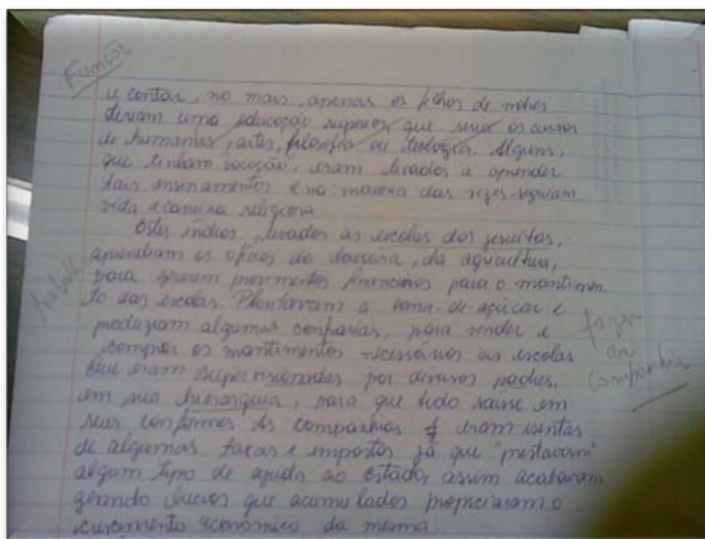 Função
e contar, no mais, apenas os filhos de nobres
teriam uma educação superior, que seria os cursos
de humanas, artes, filosofia ou teologia. Alguns,
que tinham "vocação", eram levados a aprender
tais ensinamentos e na maioria das vezes seguiam
vida e carreira religiosa
Estes índios, levados as escolas dos jesuítas,
aprendiam os ofícios da lavoura, da agricultura,
para gerarem provimentos financeiros para o mantimen
to das escolas. Plantavam a cana-de-açúcar e
produziam algumas confrarias, para vender e
comprar os mantimentos necessários as escolas
que eram supervisionadas por diversos padres,
em sua hierarquia, para que tudo saisse em
seus conformes. As companhias eram isentas
de algumas taxas e impostos já que "prestavam"
algum tipo de ajuda ao Estado, assim acabavam
gerando lucros que acumulados propiciaram o
crescimento econômico da mesma.
da
Companhia